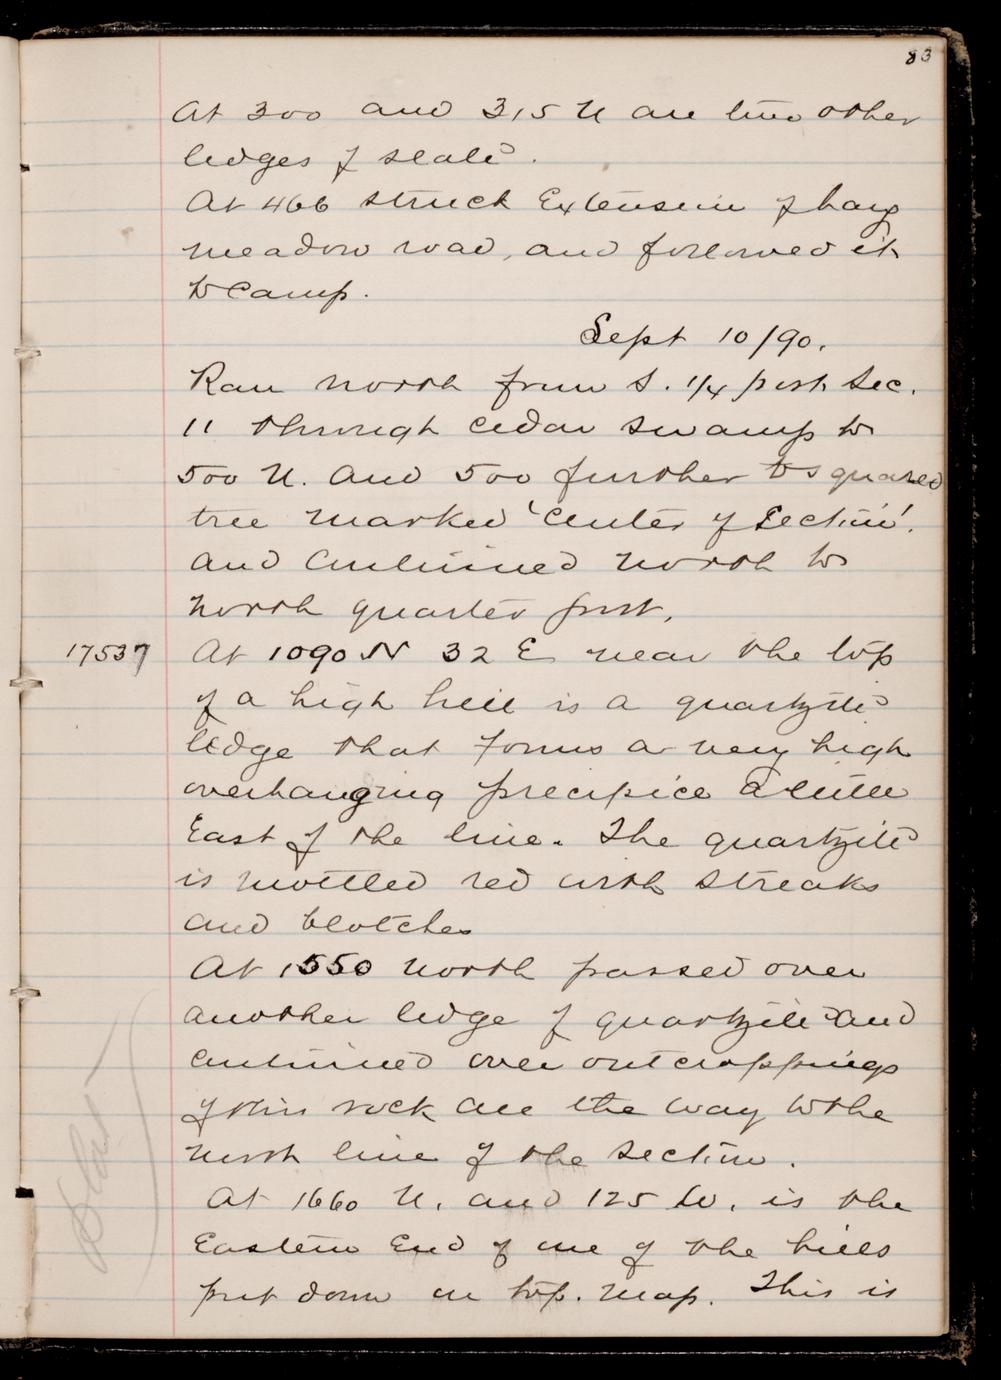 83
At 300 and 315 N are two other
ledges of slate.
At 466 struck Extension of hay
meadow road, and followed it
to camp.
Sept 10/90.
Ran north from S. 1/4 post Sec.
11 through cedar swamp to
500 N. and 500 further to squared
tree marked 'Center of Section'.
and continued north to
north quarter post.
17537 At 1090 N 32 E near the top
of a high hill is a quartzite
ledge that forms a very high
overhanging precipice a little
East of the line. The quartzite
is mottled red with streaks
and blotches
At 1550 north passed over
another ledge of quartzite and
continued over outcroppings
of this rock all the way to the
north line of the section.
At 1660 N. and 125 W. is the
Eastern End of one of the hills
put down on top. map. This is